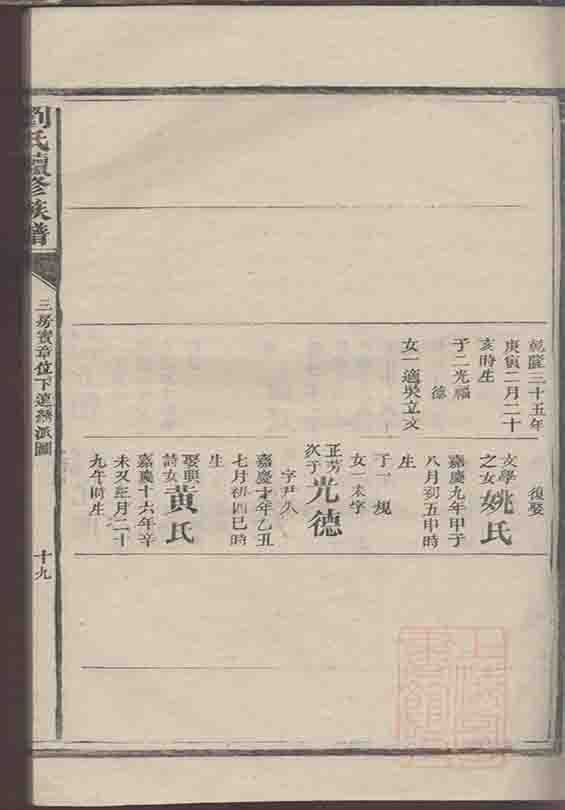 劉氏續修族譜
三房賓章位下連綿派圖
十九
乾隆三十五年
庚寅二月二十
亥時生
子二光福
德
女一適吳立文
復娶
文學
之女姚氏
嘉慶九年甲子
八月初五申時
生
子一規
女一未字
正芳
次子光德
字尹久
嘉慶十年乙丑
七月初四巳時
生
娶
詩女黃氏
嘉慶十六年辛
未又三月二十
九午時生